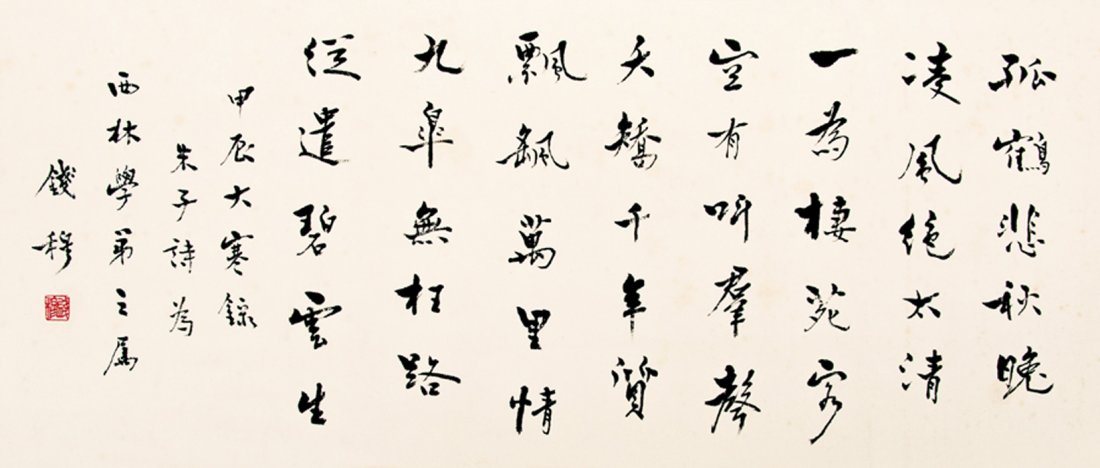 孤鶴悲秋晚
凌風絕太清
一為棲苑客
空有叫羣聲
夭矯千年質
飄飖萬里情
九皋無枉路
從遣碧雲生
甲辰大寒錄
朱子詩為
西林學弟之属
錢穆